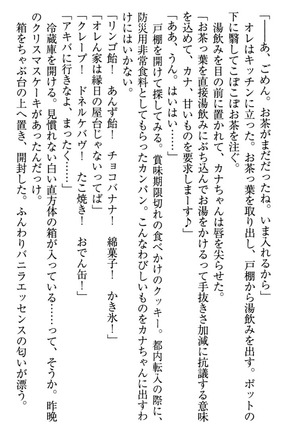 「――あ、ごめん。お茶がまだだったね。いま入れるから」
　オレはキッチンに立った。お茶っ葉を取り出し、戸棚から湯飲みを出す。ポットの
下に翳してこぽこぽお茶を注ぐ。
　湯飲みを目の前に置かれて、カナちゃんは唇を尖らせた。
「お茶っ葉を直接湯飲みにぶち込んでお湯をかけるって手抜きさ加減に抗議する意味
を込めて、カナ、甘いものを要求しまーす♪」
「ああ、うん。はいはい……」
　戸棚を開けて探してみる。賞味期限切れの食べかけのクッキー。都内転入の際に、
防災用非常食料としてもらったカンパン。こんなわびしいものをカナちゃんに出すわ
けにはいかない。
「リンゴ飴！　あんず飴！　チョコバナナ！　綿菓子！　かき氷！」
「オレん家は縁日の屋台じゃないってば」
「クレープ！　ドネルケバヴ！　たこ焼き！　おでん缶！」
「アキバに行きなよ、まったく……」
　冷蔵庫を開ける。見慣れない白い直方体の箱が入っている……って、そうか。昨晩
のクリスマスケーキがあったんだっけ。
　箱をちゃぶ台の上へ置き、開封した。ふんわりバニラエッセンスの匂いが漂う。